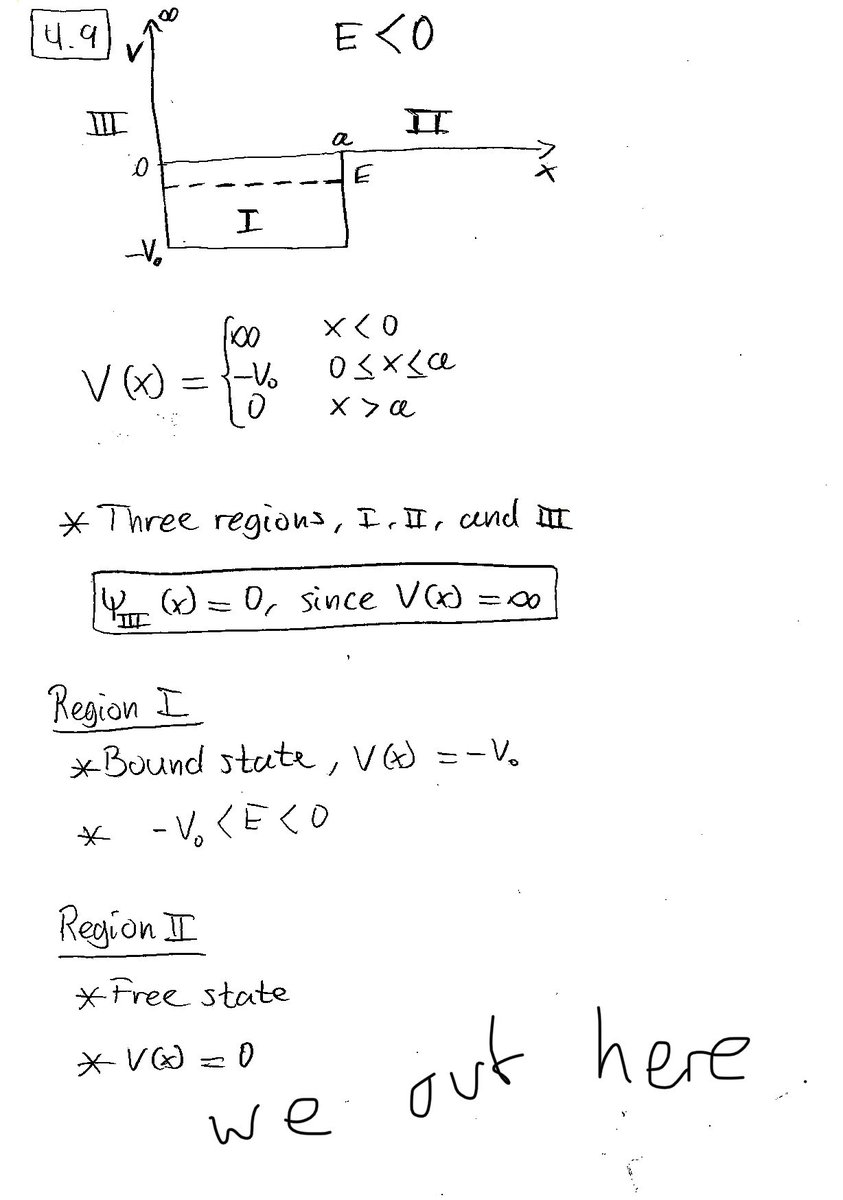 4.9
V ∞
E < 0
III
II
a
0
E
x
I
-V₀
V(x) = { ∞ x < 0
-V₀ 0 ≤ x ≤ a
0 x > a
* Three regions, I, II, and III
ψ_III (x) = 0, since V(x) = ∞
Region I
* Bound state, V(x) = -V₀
* -V₀ < E < 0
Region II
* Free state
* V(x) = 0
we out here